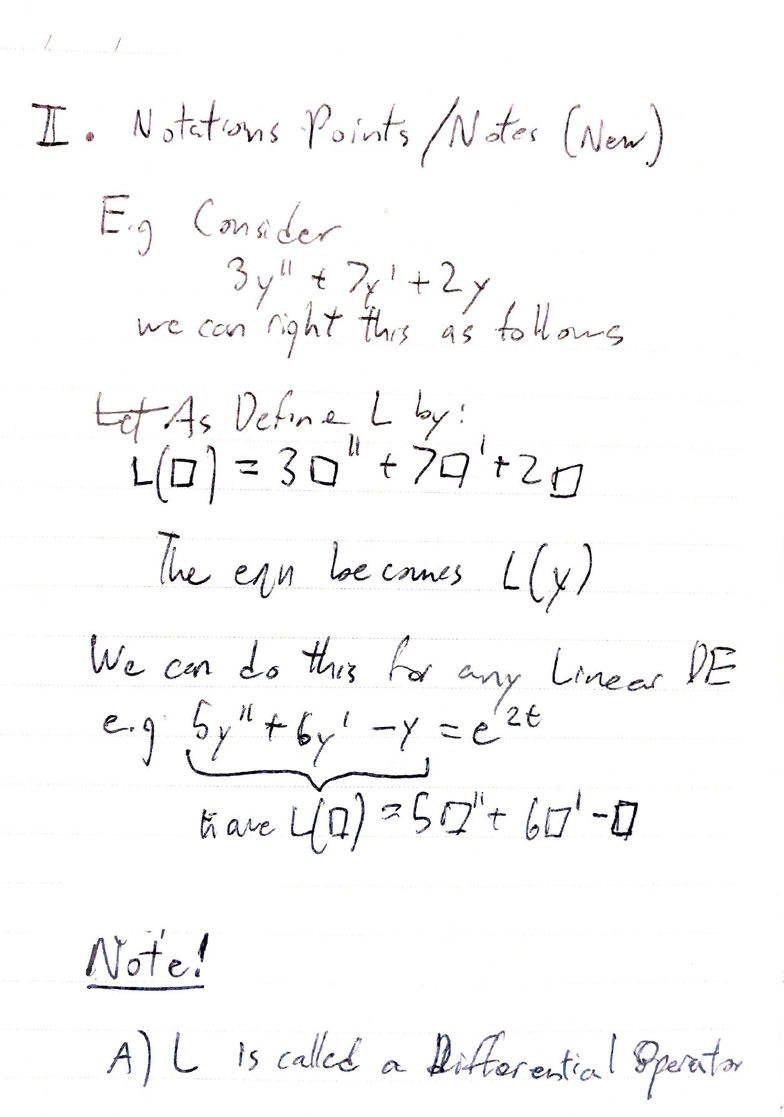 II. Notations Points/Notes (New)
E.g Consider
3y'' + 7y' + 2y
we can right this as follows
Let As Define L by:
L(□) = 3□'' + 7□' + 2□
The eqn becomes L(y)
We can do this for any Linear DE
e.g 5y'' + 6y' - y = e^2t
have L(□) = 5□'' + 6□' - □
Note!
A) L is called a Differential Operator